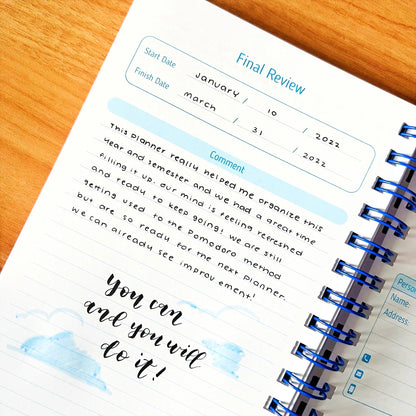 Final Review
Start Date January / 10 / 2022
Finish Date march / 31 / 2022
Comment
This planner really helped me organize this
year and semester and we had a great time
filling it up. our mind is feeling refreshed
and ready to keep going! we are still
getting used to the Pomodoro method
but are so ready for the next planner.
we can already see improvement!
you can
and you will
do it!
Person
Name:
Address: